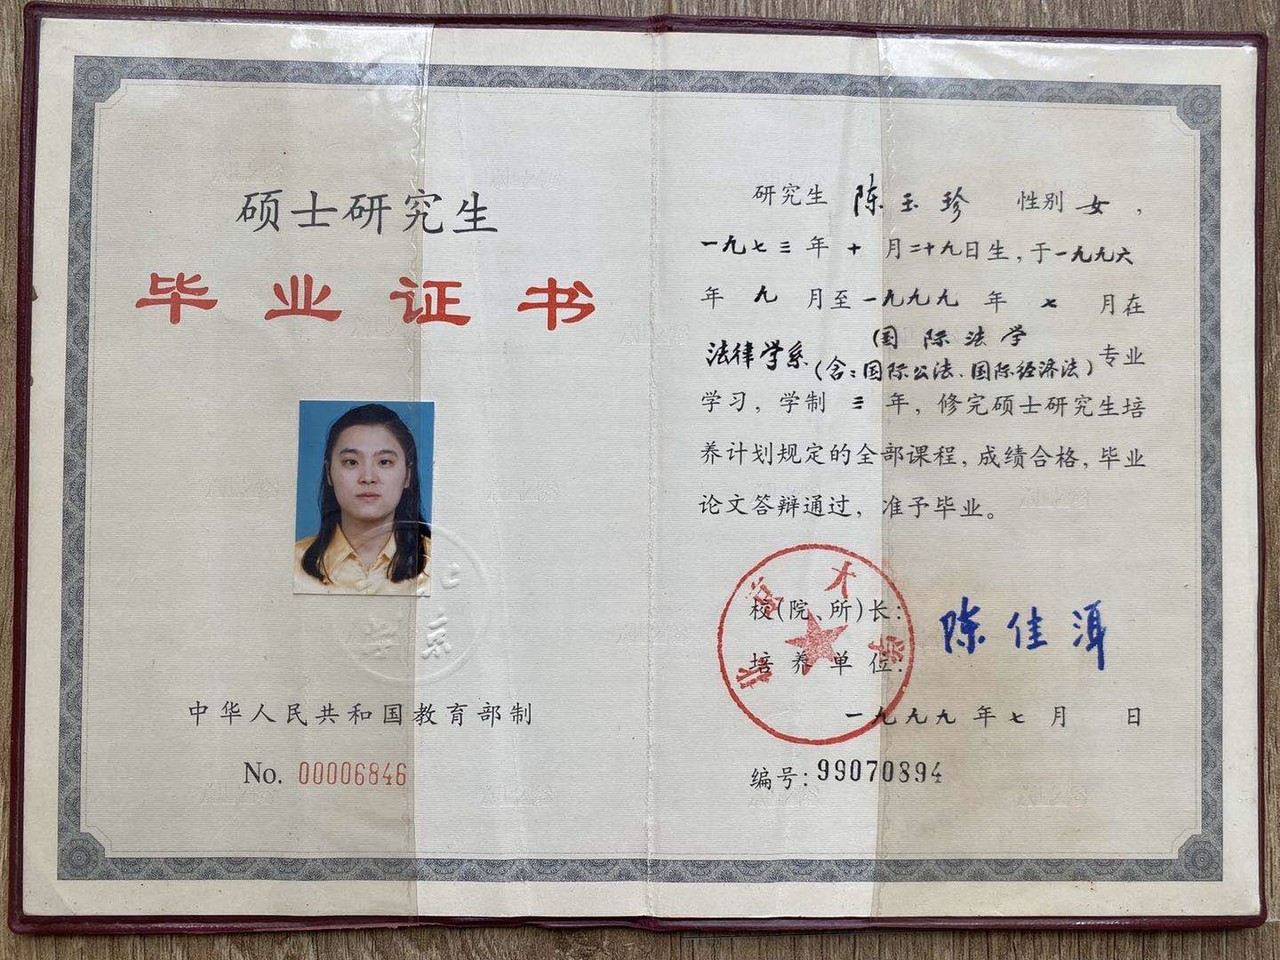 硕士研究生
毕业证书
北京
大学
中华人民共和国教育部制
No. 00006846
研究生 陈玉珍 性别 女，
一九七三年十月二十九日生，于一九九六
年九月至一九九九年七月在
国际法学
法律学系(含:国际公法、国际经济法)专业
学习，学制三年，修完硕士研究生培
养计划规定的全部课程，成绩合格，毕业
论文答辩通过，准予毕业。
北京大学
校(院、所)长: 陈佳洱
培养单位:
一九九九年七月 日
编号: 99070894